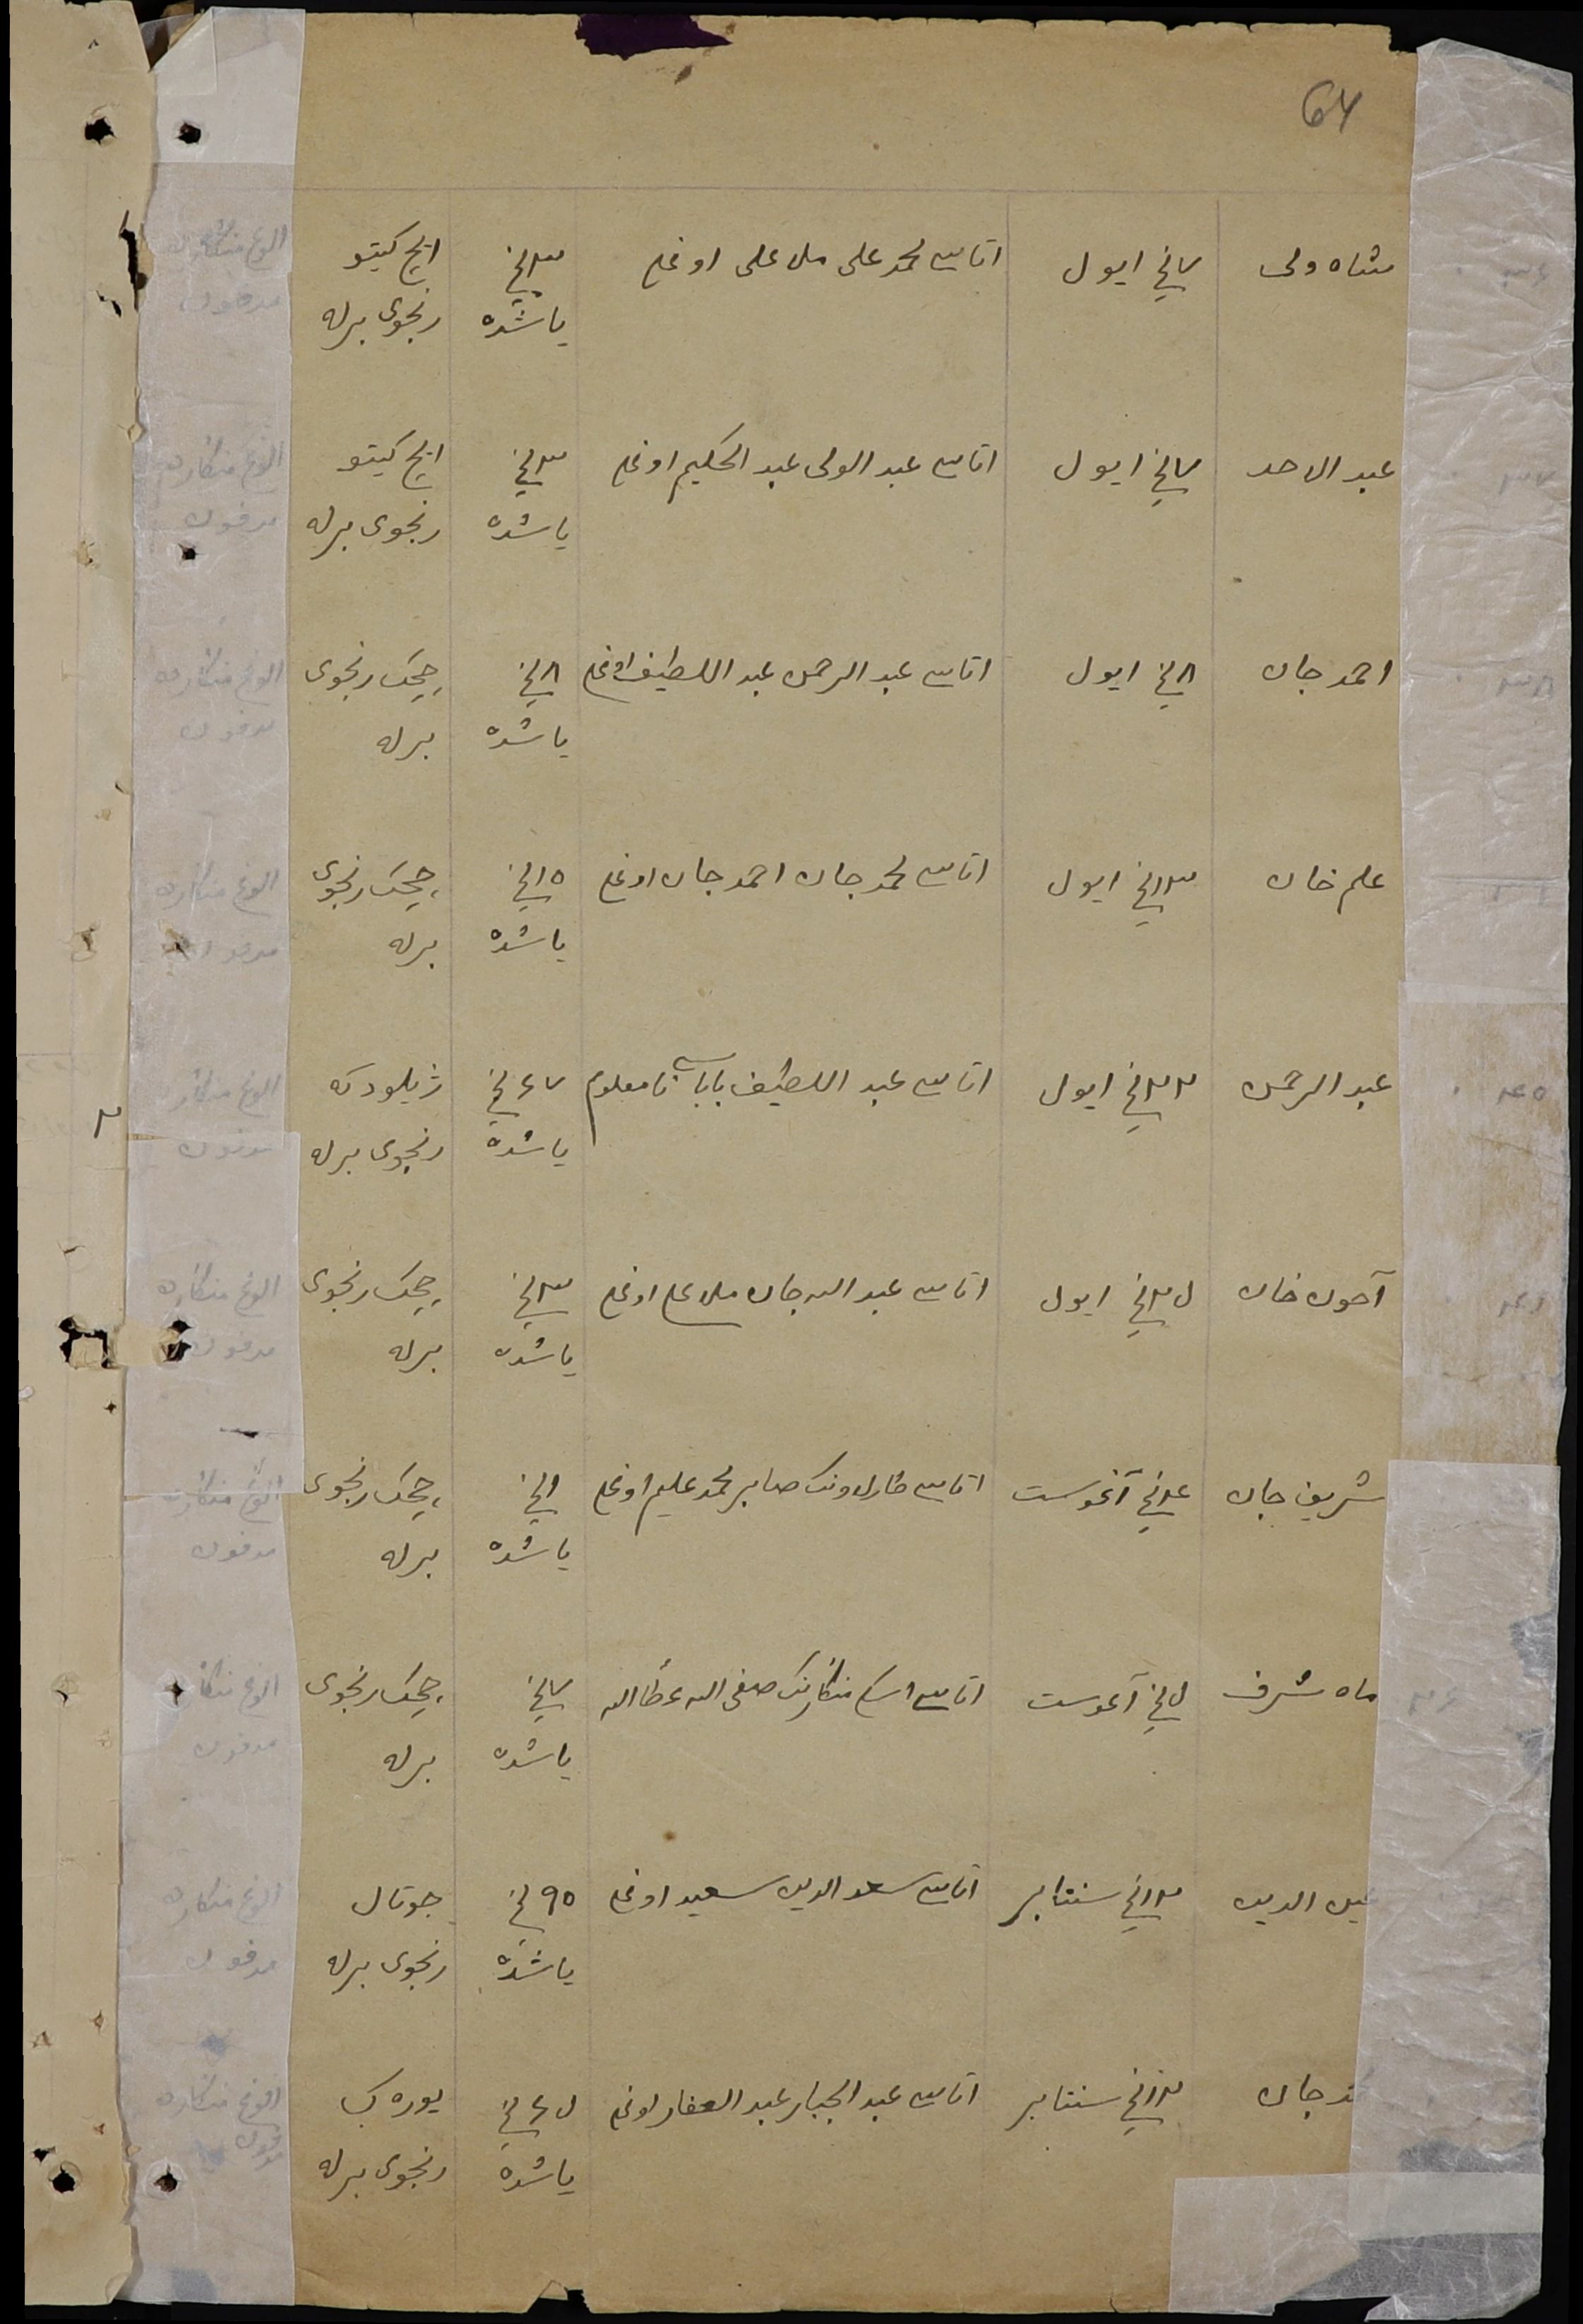 64
شاه ولی
۷نچی ایول
اتاسی محمد علی ملا علی اوغلی
۳نچی
یاشده
ایچ کیتو
رنجوی برله
الوغ منگارده
مدفون
عبد الاحد
۷نچی ایول
اتاسی عبد الولی عبد الحکیم اوغلی
۳نچی
یاشده
ایچ کیتو
رنجوی برله
الوغ منگارده
مدفون
احمد جان
۸نچی ایول
اتاسی عبد الرحمن عبد اللطیف اوغلی
۸نچی
یاشده
چیچک رنجوی
برله
الوغ منگارده
مدفون
علم خان
۱۳نچی ایول
اتاسی محمد جان احمد جان اوغلی
۱۵نچی
یاشده
چیچک رنجوی
برله
الوغ منگارده
مدفون
۴۰
عبد الرحمن
۲۲نچی ایول
اتاسی عبد اللطیف باباسی نامعلوم
۶۷نچی
یاشده
ژیلودکه
رنجوی برله
الوغ منگارده
مدفون
۴۱
آخون خان
نچی ایول
اتاسی عبد الله جان ملا علی اوغلی
۳نچی
یاشده
چیچک رنجوی
برله
الوغ منگارده
مدفون
شریف جان
۴نچی آغوست
اتاسی صابر محمد علیم اوغلی
۱نچی
یاشده
چیچک رنجوی
برله
الوغ منگارده
مدفون
ماه شرف
نچی آغوست
اتاسی صفی الله عطا الله
۷نچی
یاشده
چیچک رنجوی
برله
الوغ
مدفون
الدین
۱۲نچی سنتابر
اتاسی سعد الدین سعید اوغلی
۹۵نچی
یاشده
جوتال
رنجوی برله
الوغ منگارده
مدفون
جان
سنتابر
اتاسی عبد الجبار عبد الغفار اوغلی
یاشده
یورەک
رنجوی برله
الوغ منگارده
مدفون